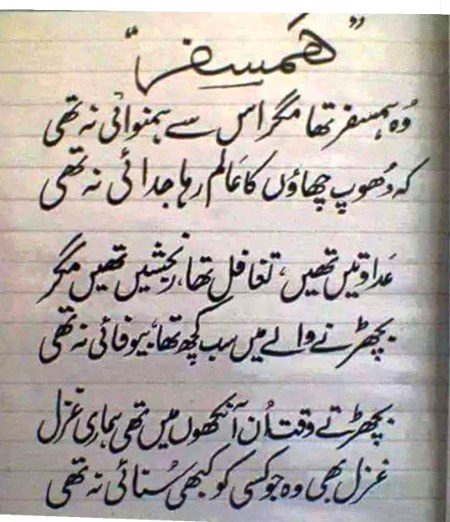 "ہمسفر"
وُہ ہمسفر تھا مگر اس سے ہمنوائی نہ تھی
کہ دُھوپ چھاؤں کا عَالم رہا جدائی نہ تھی
عَداوتیں تھیں، تغافل تھا، رنجشیں تھیں مگر
بچھڑنے والے میں سب کچھ تھا، بیوفائی نہ تھی
بچھڑتے وقت اُن آنکھوں میں تھی ہماری غزل
غزل بھی وہ جو کسی کو کبھی سُنائی نہ تھی